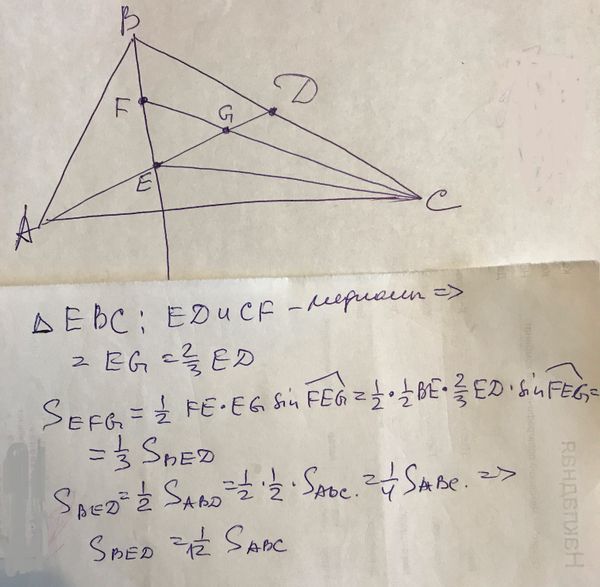 B
F
G
D
E
A
C
Δ EBC: ED и CF – медианы =>
= EG = 2/3 ED
S_EFG = 1/2 FE · EG sin FEG = 1/2 · 1/2 BE · 2/3 ED · sin FEG =
= 1/3 S_BED
S_BED = 1/2 S_ABD = 1/2 · 1/2 · S_ABC. = 1/4 S_ABC. =>
S_BED = 1/12 S_ABC